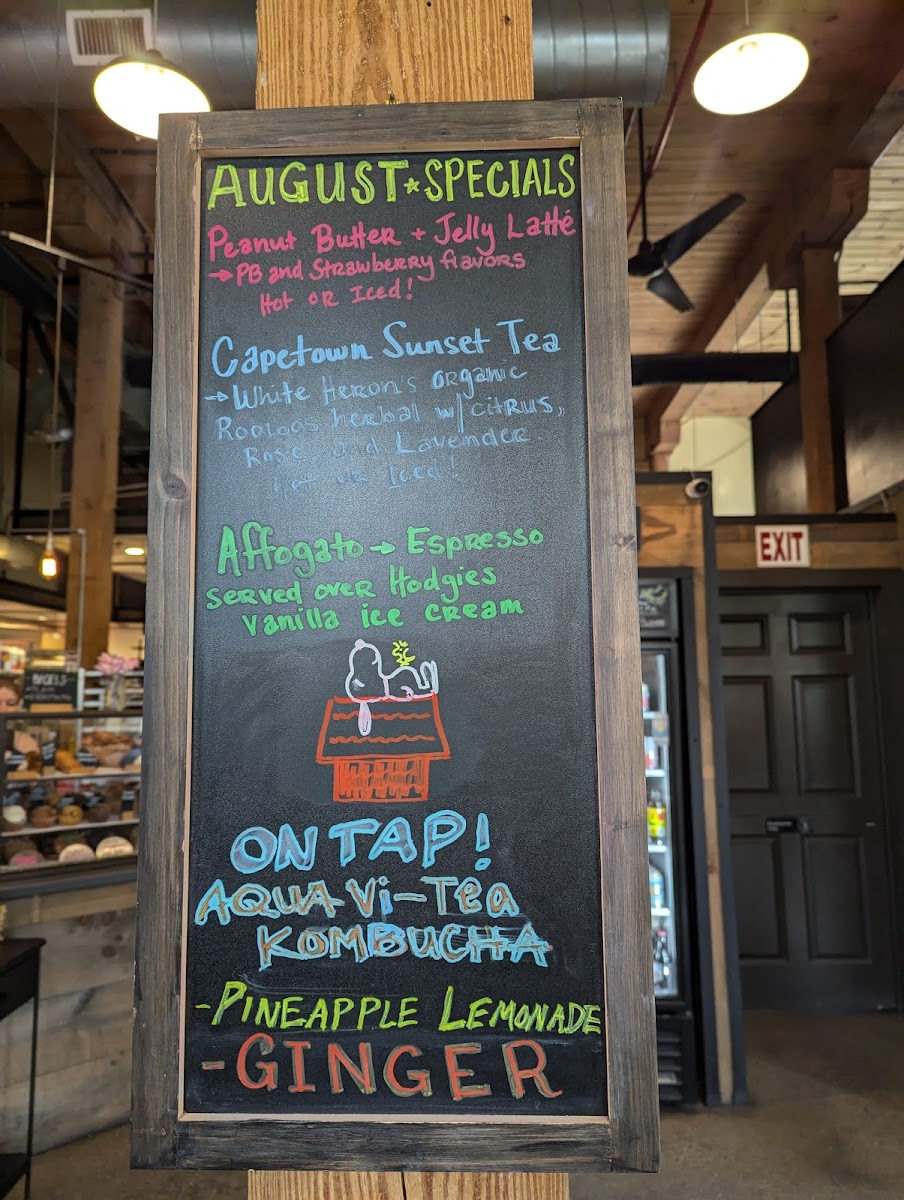 AUGUST★SPECIALS
Peanut Butter + Jelly Latté
→ PB and Strawberry flavors
Hot or Iced!
Capetown Sunset Tea
→ White Heron's organic
Rooibos herbal w/ citrus,
Rose and Lavender
hot or Iced!
Affogato → Espresso
served over Hodgies
Vanilla ice cream
ON TAP!
AQUA-Vi-Tea
KOMBUCHA
- PINEAPPLE LEMONADE
- GINGER
EXIT
BAGELS